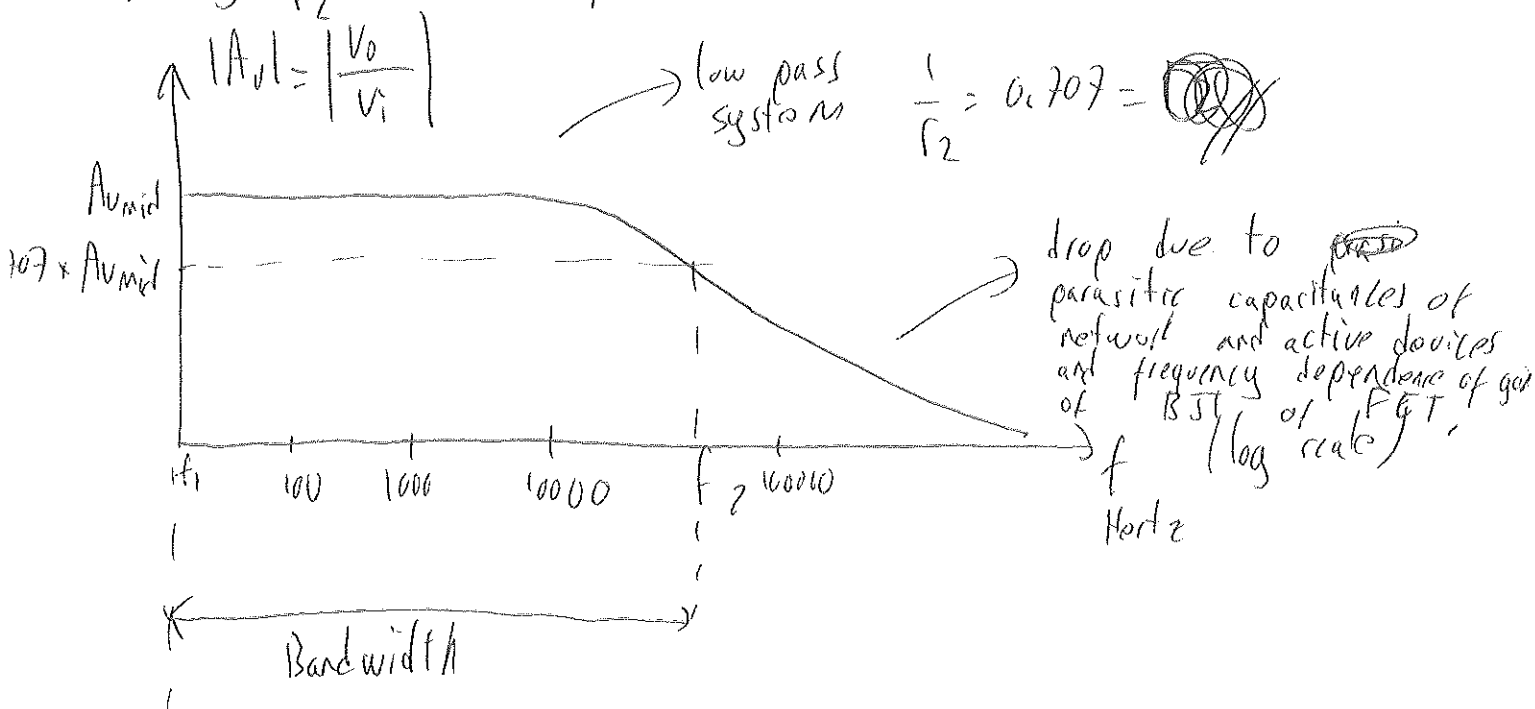 |Av| = |Vo/Vi|
low pass
system
1/√2 = 0.707 =
Avmid
707 x Avmid
drop due to
parasitic capacitances of
network and active devices
and frequency dependence of gain
of BJT or FET.
f1 100 1000 10000 f2 100000
f (log scale)
Hertz
Bandwidth